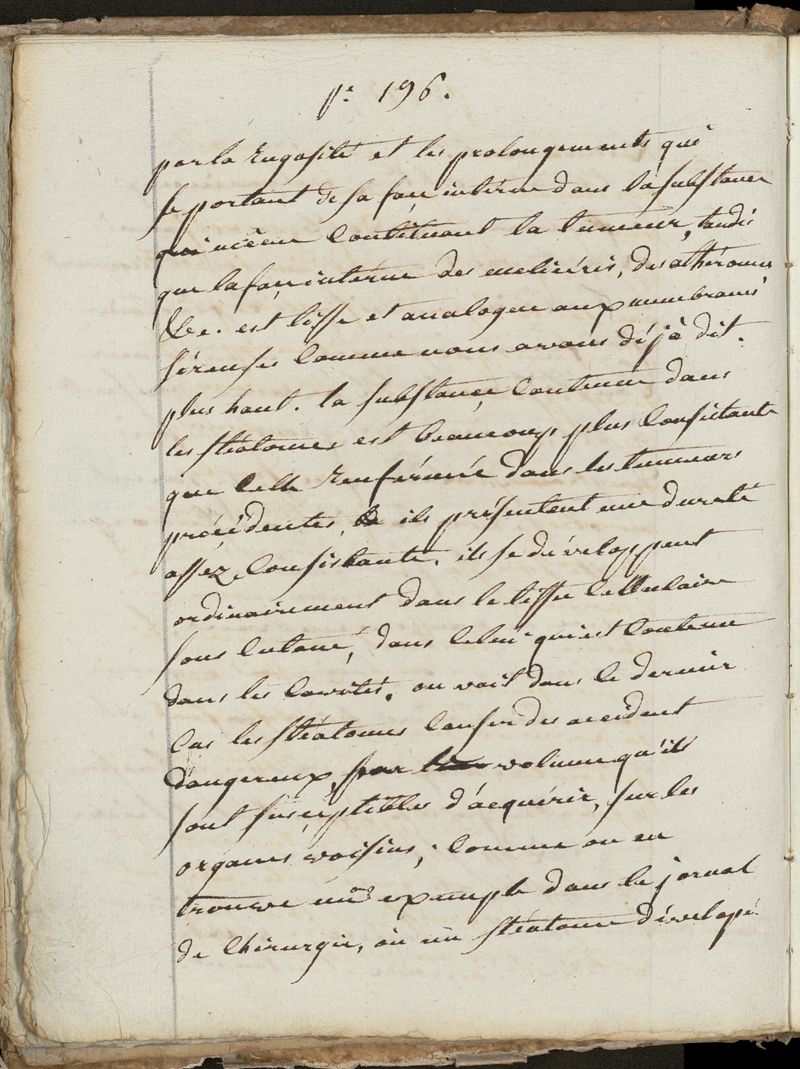 pe. 196.
par la rugosité et les prolongements qui
se portent de sa face interne dans la substance
qui même constituant la tumeur, tandis
que la face interne des meliceris, des athéromes
&c. est lisse et analogue aux membranes
séreuses comme nous avons déjà dit.
plus haut. la substance contenue dans
les stéatomes est beaucoup plus consistante
que celle renfermée dans les tumeurs
précédentes, ils présentent une dureté
assez consistante. ils se développent
ordinairement dans le tissu cellulaire
sous cutané, dans celui qui est contenue
dans les cavités. on voit dans le dernier
cas les stéatomes causer des accident
dangereux, par volume qu'ils
sont susceptibles d'acquérir, sur les
organes voisins; comme on en
trouve un exemple dans le jornal
de chirurgie, où un stéatome dévelopé